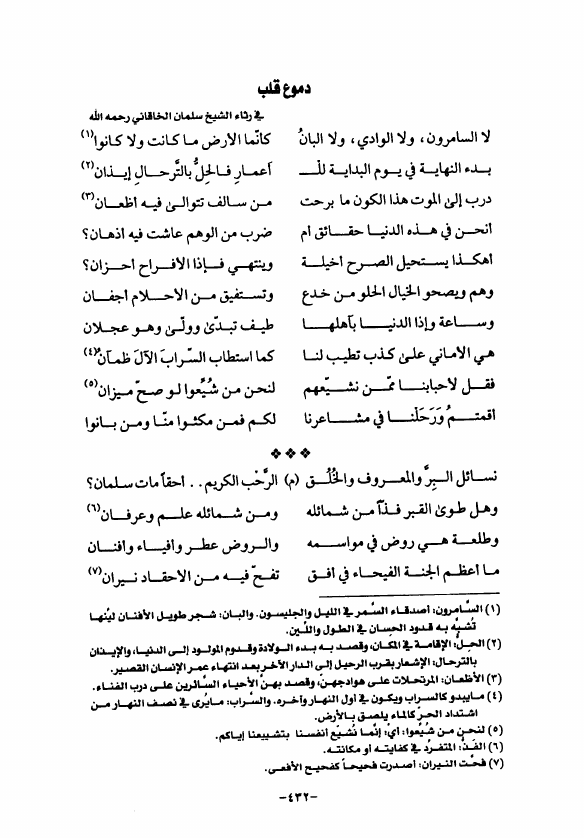 دموع قلب
في رثاء الشيخ سلمان الخاقاني رحمه الله
لا السامرون، ولا الوادي، ولا البانُ كأنّما الارض ما كانت ولا كانوا(١)
بدء النهاية في يوم البداية للـ أعمارِ فالحِلُّ بالتَّرحالِ إيذان(٢)
درب إلى الموت هذا الكون ما برحت من سالف تتوالى فيه أظعان(٣)
أنحن في هذه الدنيا حقائق أم ضرب من الوهم عاشت فيه أذهان؟
أهكذا يستحيل الصرح أخيلة وينتهي فإذا الأفراح أحزان؟
وهم ويصحو الخيال الحلو من خدع وتستفيق من الأحلام أجفان
وساعة وإذا الدنيا بأهلها طيف تبدّىٰ وولّىٰ وهو عجلان
هي الاماني علىٰ كذب تطيب لنا كما استطاب السَّرابَ الآلَ ظمآن(٤)
فقل لأحبابنا ممّن نشيّعهم لنحن من شُيِّعوا لو صحّ ميزان(٥)
اقمتمُ وَرَحَلْنا في مشاعرنا لكم فمن مكثوا منّا ومن بانوا
❖❖❖
نسائل البِرَّ والمعروف والخُلُق (م) الرَّحْب الكريم.. أحقاً مات سلمان؟
وهل طوىٰ القبر فذّاً من شمائله ومن شمائله علم وعرفان(٦)
وطلعة هي روض في مواسمه والروض عطر وأفياء وأفنان
ما أعظم الجنة الفيحاء في أفق تفحّ فيه من الاحقاد نيران(٧)
(١) السَّامرون: أصدقاء السَّمر في الليل والجليسون. والبان: شجر طويل الأفنان ليِّنها
تُشبَّه به قدود الحِسان في الطول واللِّين.
(٢) الحِلُّ: الإقامة في المكان، وقصد به بدء الولادة وقدوم المولود إلى الدنيا، والإيذان
بالترحال: الإشعار بقرب الرحيل إلى الدار الآخر بعد انتهاء عمر الإنسان القصير.
(٣) الأظعان: المرتحلات على هوادجهنّ، وقصد بهنّ الأحياء السَّائرين على درب الفناء.
(٤) ما يبدو كالسراب ويكون في أول النهار وآخره. والسَّراب: ما يُرى في نصف النهار من
اشتداد الحرّ كالماء يلصق بالأرض.
(٥) لنحن من شُيِّعوا: أي: إنَّما نُشيِّع أنفسنا بتشييعنا إياكم.
(٦) الفَذُّ: المتفرِّد في كفايته أو مكانته.
(٧) فحَّت النيران: أصدرت فحيحاً كفحيح الأفعى.
-٤٣٢-